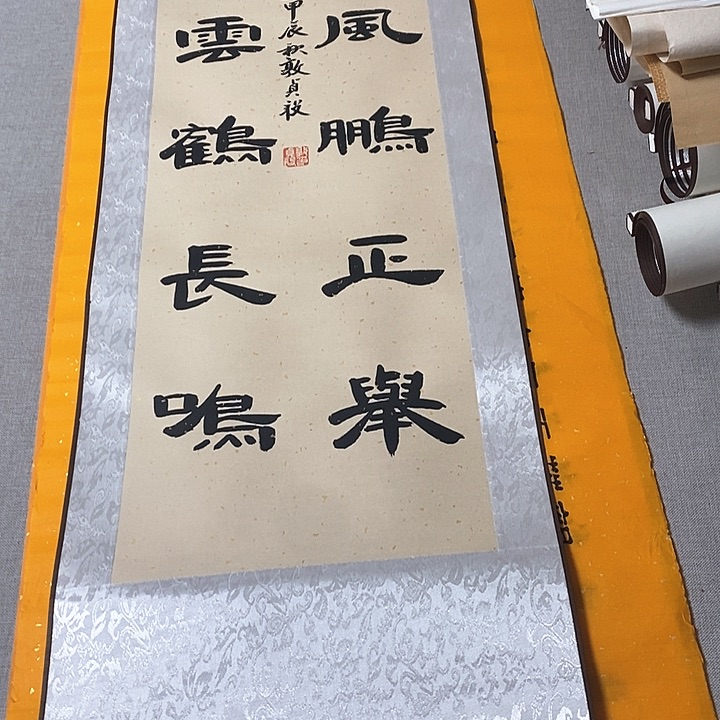 風鵬正舉
雲鶴長鳴
甲辰秋敦貞